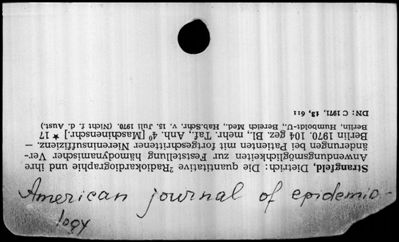 Strangfeld, Dietrich: Die quantitative ²Radiokardiographie und ihre
Anwendungsmöglichkeiten zur Feststellung hämodynamischer Ver-
änderungen bei Patienten mit fortgeschrittener Niereninsuffizienz. —
Berlin 1970. 104 gez. Bl., mehr. Taf., Anh. 4° [Maschinenschr.] * 17
Berlin, Humboldt-U., Bereich Med., Hab.Schr. v. 15. Juli 1970. (Nicht f. d. Aust.)
DN: C 1971, 13, 611
American journal of epidemio-
logy